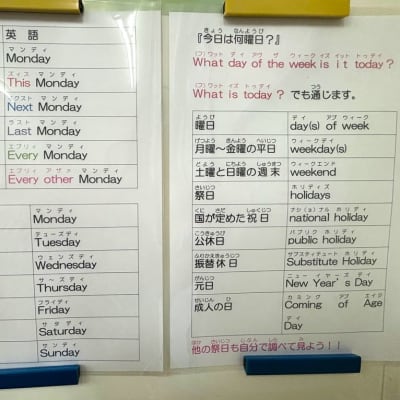 英 語
マンディ
Monday
ズィス マンディ
This Monday
クスト マンディ
Next Monday
ラスト マンディ
Last Monday
エブリィ マンディ
Every Monday
エブリィ アザァ マンディ
Every other Monday
マンディ
Monday
テューズディ
Tuesday
ウェンズディ
Wednesday
サ〜ズディ
Thursday
フライディ
Friday
サタディ
Saturday
サンディ
Sunday
きょう なんようび
『今日は何曜日？』
(フ)ワット デイ アヴ ザ ウィーク イズ イット トゥデイ
What day of the week is it today?
(フ)ワット イズ トゥデイ つう
What is today? でも通じます。
ようび デイ アブ ウィーク
曜日 day(s) of week
げつよう きんよう へいじつ ウィークデイ
月曜〜金曜の平日 weekday(s)
どよう にちよう しゅうまつ ウィークエンド
土曜と日曜の週末 weekend
さいじつ ホリディズ
祭日 holidays
くに さだ しゅくじつ ナショナル ホリディ
国が定めた祝日 national holiday
こうきゅうび パブリク ホリディ
公休日 public holiday
ふりかえきゅうじつ サブスティテュート ホリディ
振替休日 Substitute Holiday
がんじつ ニュー イヤーズ デイ
元日 New Year's Day
せいじん ひ カミング アブ エイジ
成人の日 Coming of Age
デイ
Day
ほか さいじつ じぶん しら み
他の祭日も自分で調べて見よう！！